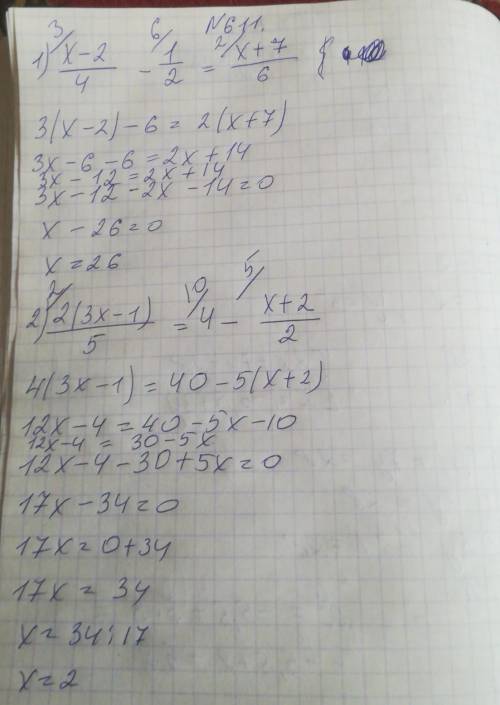 №611.
1) ³/ (x-2)/4 - ⁶/ 1/2 = ²/ (x+7)/6
3(x-2)-6=2(x+7)
3x-6-6=2x+14
3x-12=2x+14
3x-12-2x-14=0
x-26=0
x=26
2) ²/ 2(3x-1)/5 = ¹⁰/ 4 - ⁵/ (x+2)/2
4(3x-1)=40-5(x+2)
12x-4=40-5x-10
12x-4=30-5x
12x-4-30+5x=0
17x-34=0
17x=0+34
17x=34
x=34:17
x=2